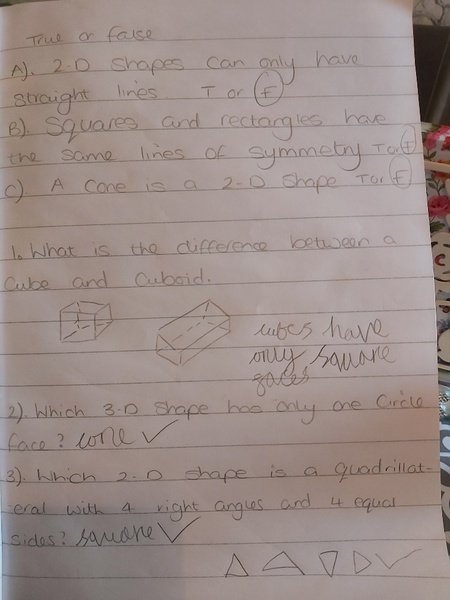 True or false
A). 2-D shapes can only have
straight lines T or F
B). Squares and rectangles have
the same lines of symmetry T or F
C). A cone is a 2-D shape T or F
1. What is the difference between a
cube and cuboid.
cubes have
only square
faces
2). Which 3-D shape has only one circle
face? cone ✓
3). Which 2-D shape is a quadrillat-
eral with 4 right angles and 4 equal
sides? square ✓